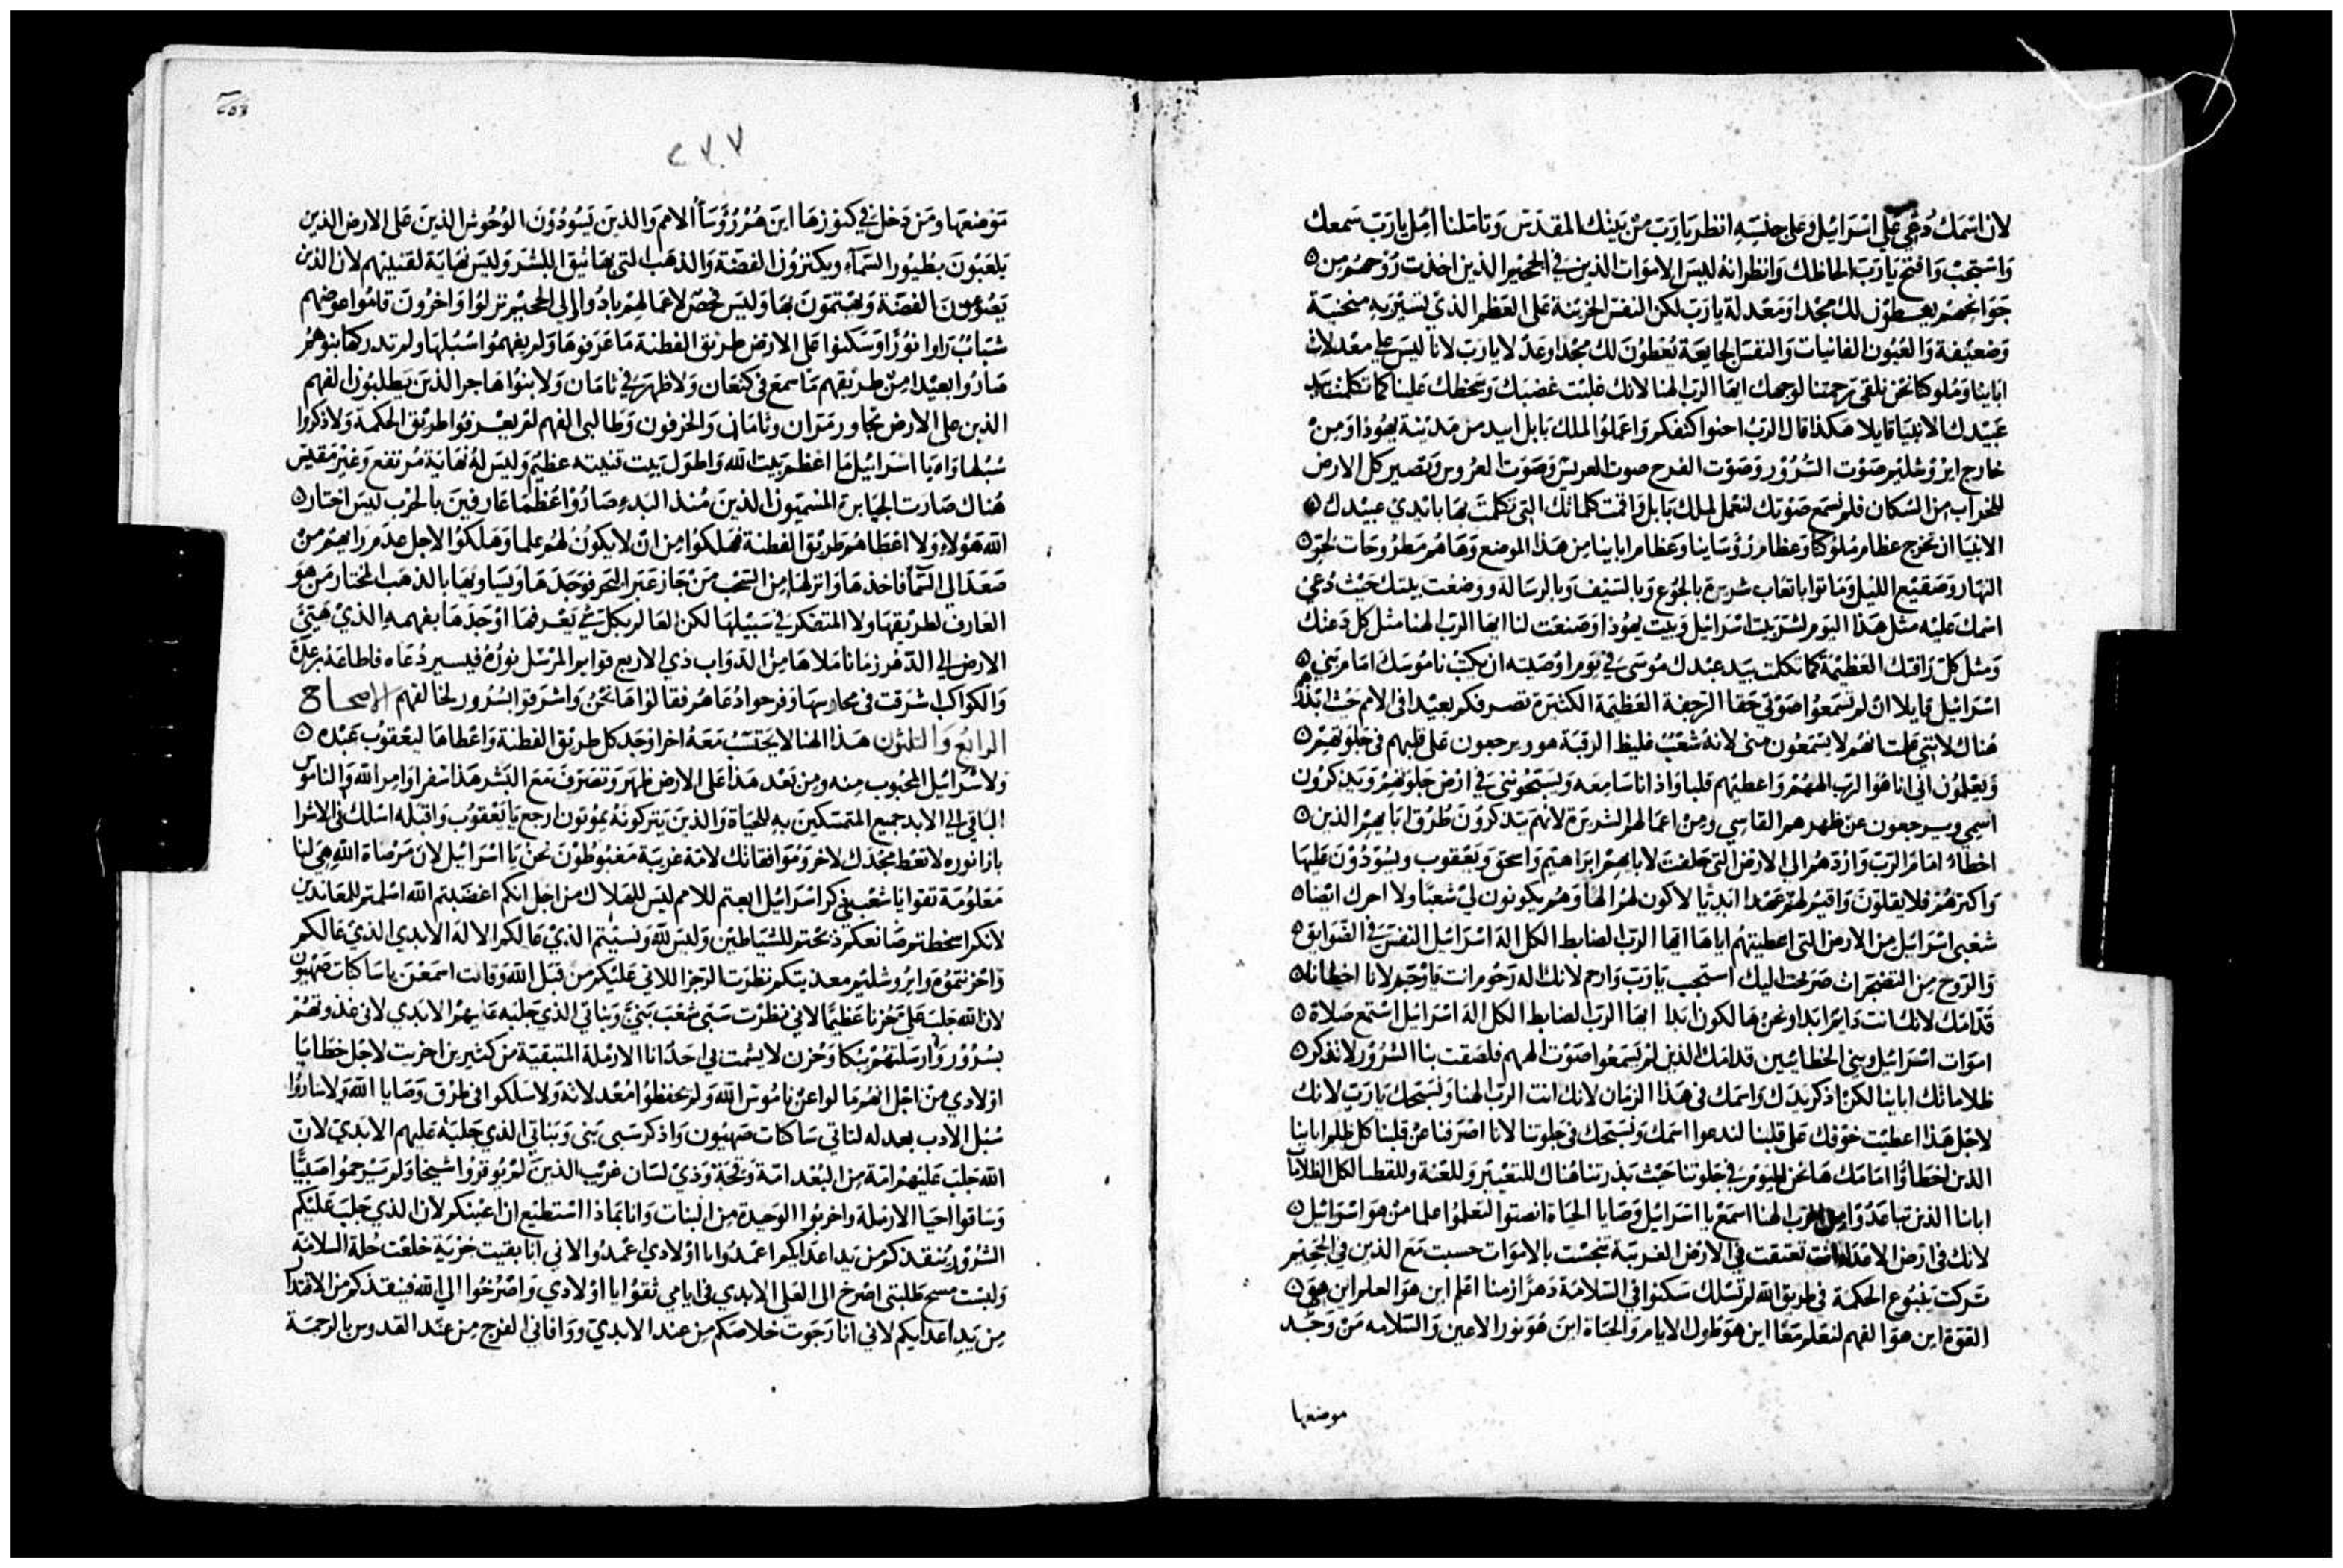 لان اسمك دُعي علي اسرائيل وعلي جنسه انظر يا رب من بيتك المقدس وتاملنا امل يا رب سمعك
واستجب وافتح يا رب الحاظك وانظر انه ليس الاموات الذين في الجحيم الذين اخذت روحهم من ٥
جوانحهم يعطون لك مجدا ومعدلة يا رب لكن النفس الحزينة على العظم الذي تسير به منحنية
وضعيفة والعيون الفانيات والنفس الجايعة يعطون لك مجدا وعدلا يا رب لانا ليس على معدلات
ابائنا وملوكنا نحن نلقى رحمتنا لوجهك ايها الرب الهنا لانك غلبت غضبك وسخطك علينا كما تكلمت بيد
عبيدك الانبيا قايلا هكذا قال الرب احنوا كتفكم واعملوا لملك بابل ابيد من مدينة يهوذا ومن
خارج ايروشليم صوت السرور وصوت الفرح صوت العريس وصوت العروس وتصير كل الارض
للخراب من السكان فلم نسمع صوتك لنعمل لملك بابل واقمت كلماتك التي تكلمت بها بايدي عبيدك ٥
الانبيا ان تخرج عظام ملوكنا وعظام رؤساينا وعظام ابايناا من هذا الموضع وها هم مطروحات لحر ٥
النهار وصقيع الليل وماتوا باتعاب شريرة بالجوع وبالسيف وبالرسالة ووضعت بيتك حيث دعي
اسمك عليه مثل هذا اليوم لشر بيت اسرائيل وبيت يهوذا وصنعت لنا ايها الرب الهنا مثل كل دعتك
ومثل كل رافتك العظيمة كما تكلمت بيد عبدك موسى في يوم اوصيته ان يكتب ناموسك امام بني ٥
اسرائيل قايلا ان لم تسمعوا صوتي حقا الرجفة العظيمة الكثيرة تصرفكم بعيدا في الامم حيث ابذركم
هناك لانني علمت انهم لا يسمعون مني لانه شعب غليظ الرقبة هو ويرجعون على قلبهم في جلوتهم ٥
ويعلمون اني انا هو الرب الههم واعطيهم قلبا واذانا سامعه ويسبحونني في ارض جلوتهم ويذكرون
اسمي ويرجعون عن ظهرهم القاسي ومن اعمالهم الشريرة لانهم يذكرون طرق ابايهم الذين ٥
اخطاءُ امام الرب واردهم الي الارض التي حلفت لابايهم ابراهيم واسحق ويعقوب ويسودون عليها
واكثرهم فلا يقلون واقيم لهم عهدا ابديا لاكون لهم الها وهم يكونون لي شعبا ولا احرك ايضا ٥
شعبي اسرائيل من الارض التي اعطيتهم اياها ايها الرب الضابط الكل اله اسرائيل النفس في الضوايق ٥
والروح من التضجرات صرخت اليك استجب يا رب وارحم لانك اله رحوم انت فارحم لانا اخطانا ٥
قدامك لانك انت دايم ابدا ونحن هالكون ابدا ايها الرب الضابط الكل اله اسرائيل استمع صلاة ٥
اموات اسرائيل وبني الخطائين قدامك الذين لم يسمعوا صوت الههم فلصقت بنا الشرور لا تذكر ٥
ظلامات ابائنا لكن اذكر يدك واسمك في هذا الزمان لانك انت الرب الهنا ونسبحك يا رب لانك
لاجل هذا اعطيت خوفك على قلبنا لندعوا اسمك ونسبحك في جلوتنا لانا اصرفنا عن قلبنا كل ظلم ابائنا
الذين اخطاوا امامك ها نحن اليوم في جلوتنا حيث بذرتنا هناك للتعيير وللعنة وللقطا لكل الظلامات
اباينا الذين تباعدوا من الرب الهنا اسمع يا اسرائيل وصايا الحياة انصتوا لتعلموا علما من هو اسرائيل ٥
لانك في ارض الاعدا انت تعتقت في الارض الغريبة تنجست بالاموات حسبت مع الذين في الجحيم
تركت ينبوع الحكمة في طريق الله لم تسلك سكنوا في السلامة دهرا زمنا اعلم اين هو العلم اين هي ٥
القوة اين هو الفهم لتعلم معا اين هو طول الايام والحياة اين هو نور الاعين والسلامه من وجد
موضعها
٢٧٧
موضعها ومن دخل في كنوزها اين هم رؤساُ الامم والذين يسودون الوحوش الذين على الارض الذين
يلعبون بطيور السماء ويكنزون الفضة والذهب التي بها يثق البشر وليس نهاية لقنيتهم لان الذين
يصوغون الفضة ويهتمون بها وليس فحص لاعمالهم بادوا والي الجحيم نزلوا واخرون قاموا عوضهم
شباب راوا نورا وسكنوا على الارض طريق الفطنة ما عرفوها ولم يفهموا سبلها ولم تدركها بنوهم
صاروا بعيدا من طريقهم ما سمع في كنعان ولا ظهر في ثامان ولا بنوا هاجر الذين يطلبون الفهم
الذين على الارض تجاور مران وثامان والخرفون وطالبي الفهم لم يعرفوا طريق الحكمة ولا ذكروا
سبلها واه يا اسرائيل ما اعظم بيت الله واطول بيت قنيته عظيم وليس له نهاية مرتفع وغير مقيس
هناك صارت الجبابرة المسميون الذين منذ البدء صاروا عظما عارفين بالحرب ليس اختار ٥
الله هولاءِ ولا اعطاهم طريق الفطنة فهلكوا من ان لا يكون لهم علما وهلكوا لاجل عدم رايهم من
صعد الي السما فاخذها وانزلها من السحب من جاز عبر البحر فوجدها وياتي بها بالذهب المختار من هو
العارف لطريقها ولا المتفكر في سبيلها لكن العالم بكل شي يعرفها اوجدها بفهمه الذي هيئ
الارض الي الدهر زمانا ملاها من الدواب ذي الاربع قوايم المرسل نوره فيسير دعاه فاطاعه برعدة
والكواكب اشرقت في محارسها وفرحوا دعاهم فقالوا ها نحن واشرقوا بسرور لخالقهم الاصحاح
الرابع والثلثون هذا الهنا لا يحتسب معه اخر اوجد كل طريق الفطنة واعطاها ليعقوب عبده ٥
ولاسرائيل المحبوب منه ومن بعد هذا على الارض ظهر وتصرف مع البشر هذا سفر اوامر الله والناموس
الباقي الي الابد جميع المتمسكين به للحياة والذين يتركونه يموتون ارجع يا يعقوب واقبله اسلك في الاشراق
بازا نوره لا تعط مجدك لاخر وموافقاتك لامة غريبة مغبوطون نحن يا اسرائيل لان مرضاة الله هي لنا
معلومة تقوا يا شعب ذكر اسرائيل ابعتم للامم ليس للهلاك من اجل انكم اغضبتم الله اسلمتم للمعاندين
لانكم اسخطتم صانعكم ذبحتم للشياطين وليس لله ونسيتم الذي عالكم الاله الابدي الذي عالكم
واحزنتموه وايروشليم معذبتكم نظرت الرجز اللاتي عليكم من قبل الله وقالت اسمعن يا ساكنات صهيون
لان الله جلب علي حزنا عظيما لاني نظرت سبي شعب بني وبناتي الذي جلبه عليهم الابدي لاني غذوتهم
بسرور وارسلتهم ببكا وحزن لا يشمت بي احد انا الارملة المتبقية من كثيرين اخربت لاجل خطايا
اولادي من اجل انهم مالوا عن ناموس الله ولم يحفظوا معدلاته ولا سلكوا في طرق وصايا الله ولا ساروا
سبل الادب بعدله لتاتي ساكنات صهيون واذكر سبي بني وبناتي الذي جلبه عليهم الابدي لان
الله جلب عليهم امة من البعد امة وقحة وذي لسان غريب الذين لم يوقروا شيخا ولم يرحموا صبيًّا
وساقوا احبا الارملة واخربوا الوحيدة من البنات وانا بماذا استطيع ان اعينكم لان الذي جلب عليكم
الشرور ينقذكم من يد اعدايكم اغمدوا يا اولادي اغمدوا لاني انا بقيت خربة خلعت حلة السلامة
ولبست مسح طلبتي اصرخ الى العلي الابدي في ايامي ثقوا يا اولادي واصرخوا الي الله فينقذكم من الاقتدار
من يد اعدايكم لاني انا رجوت خلاصكم من عند الابدي ووافاني الفرج من عند القدوس بالرحمة